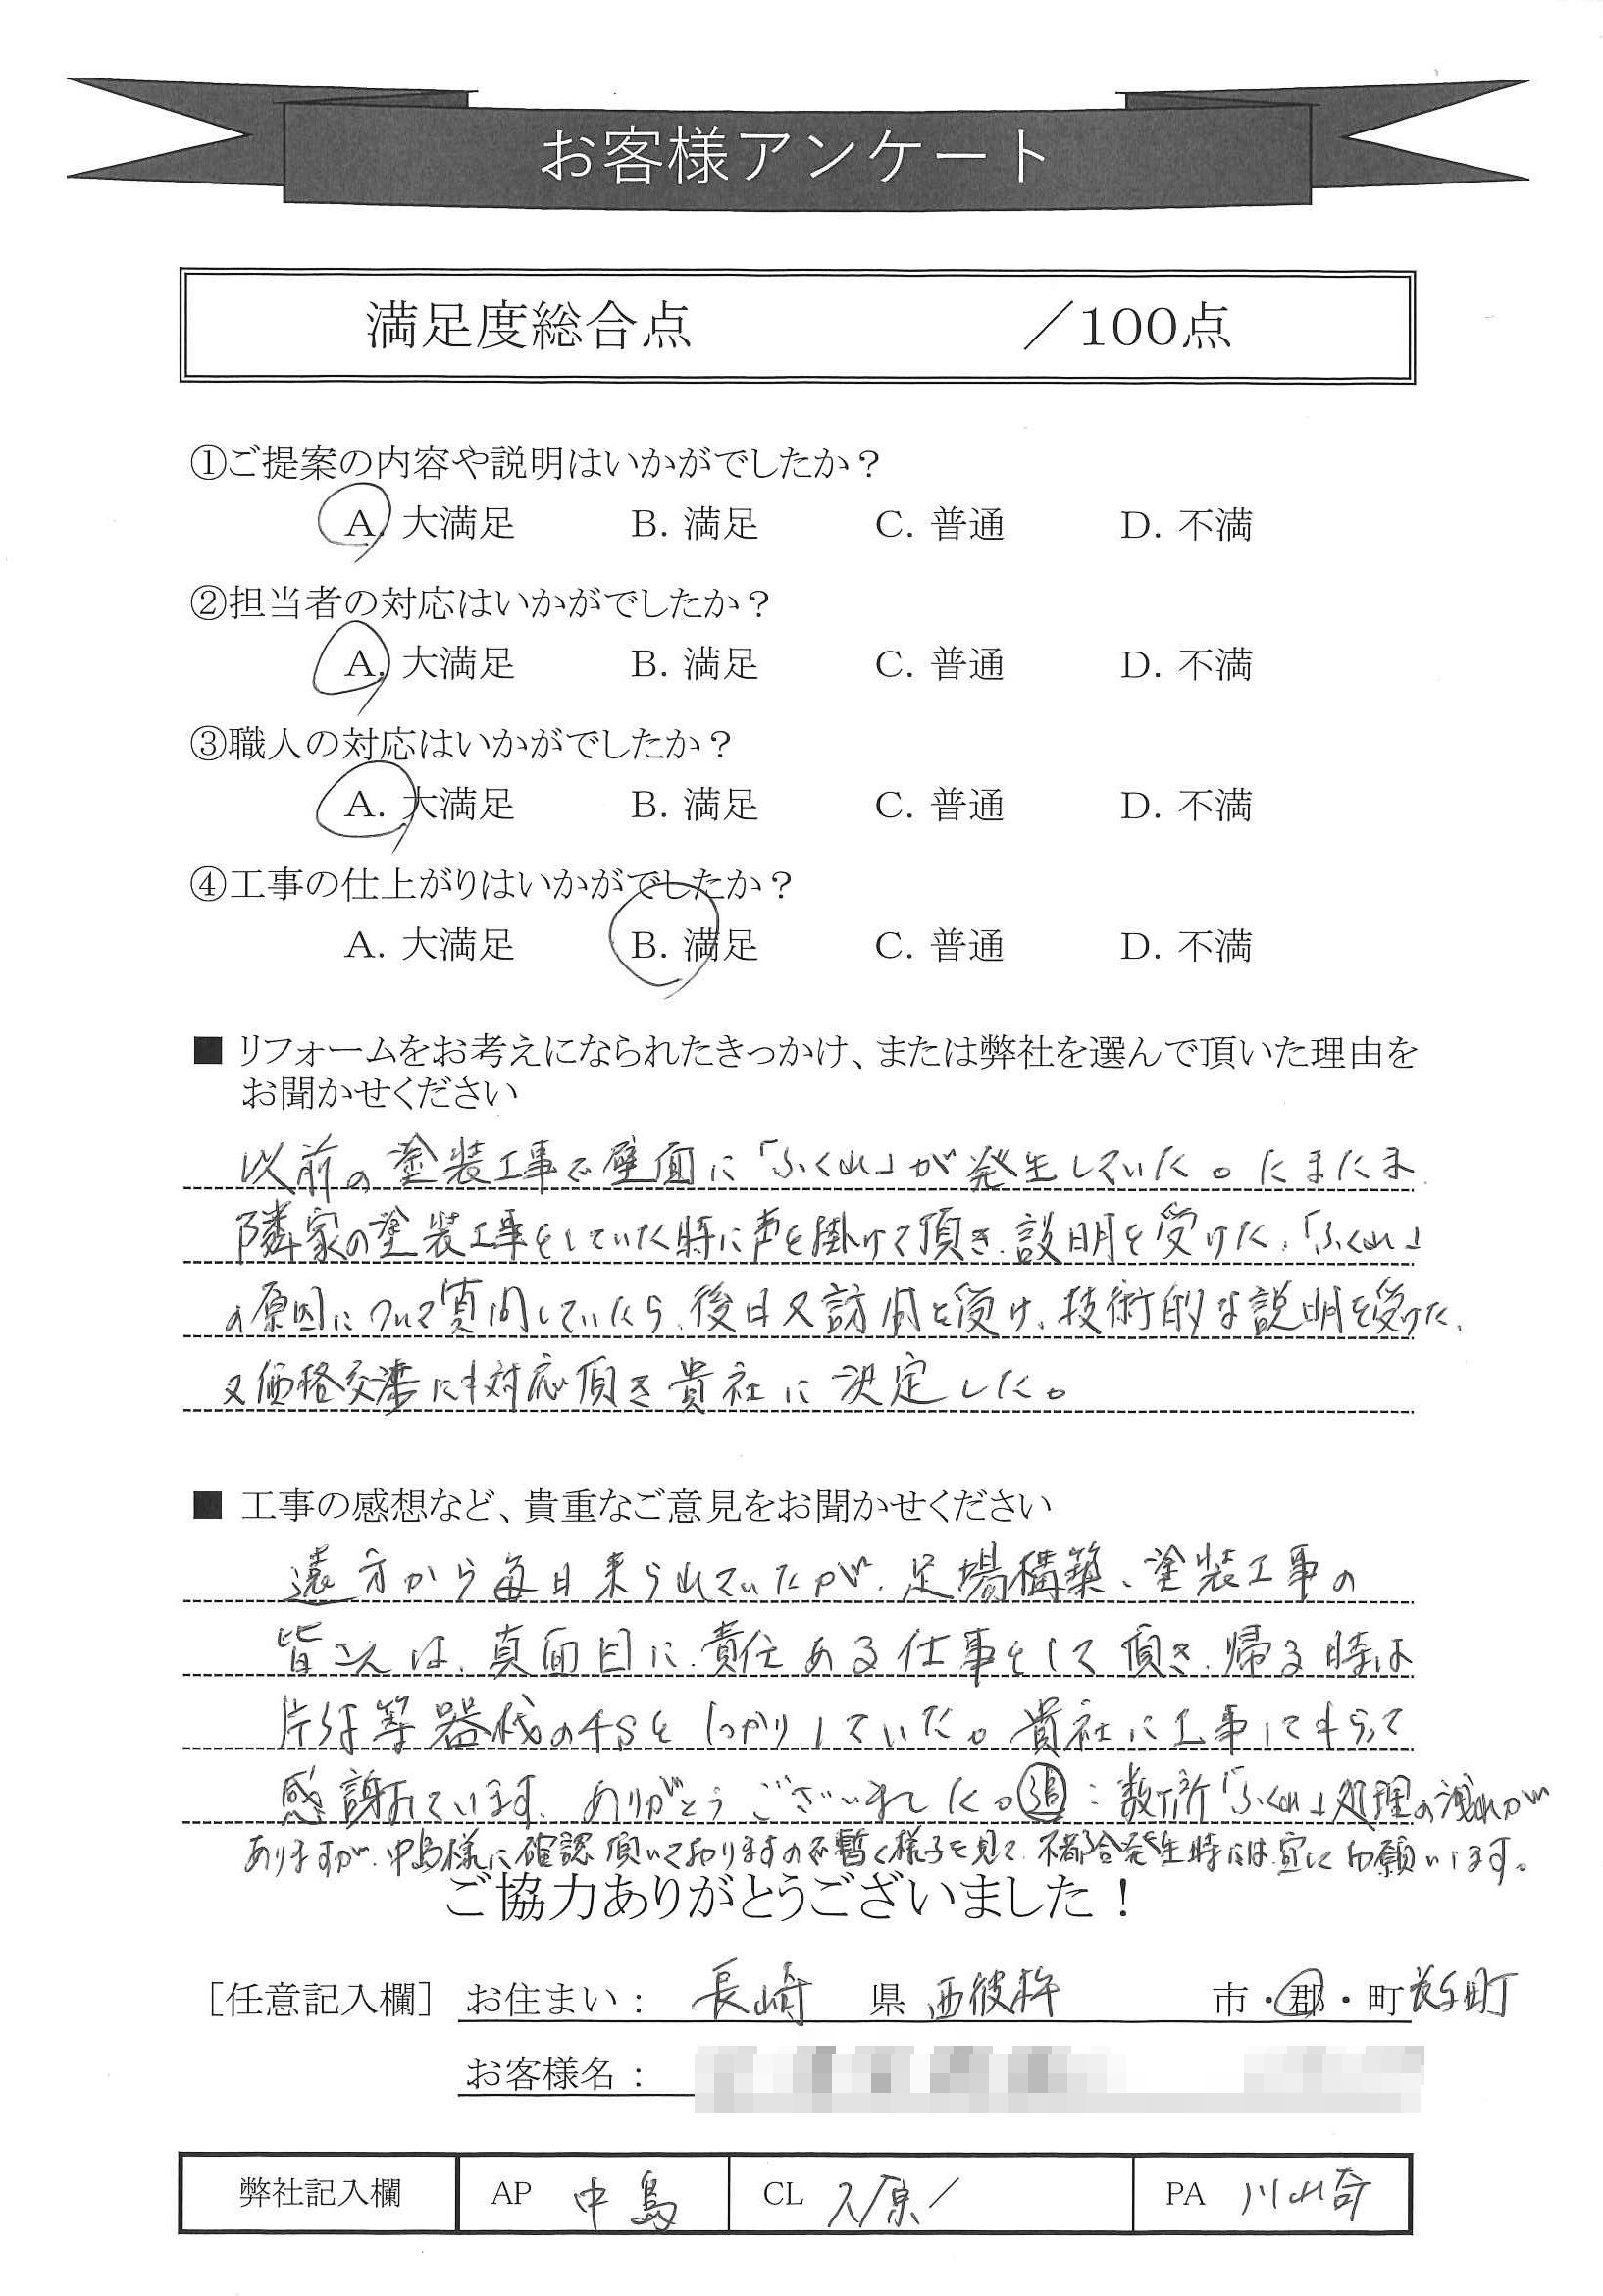 お客様アンケート
満足度総合点 ／100点
①ご提案の内容や説明はいかがでしたか？
A. 大満足 B. 満足 C. 普通 D. 不満
②担当者の対応はいかがでしたか？
A. 大満足 B. 満足 C. 普通 D. 不満
③職人の対応はいかがでしたか？
A. 大満足 B. 満足 C. 普通 D. 不満
④工事の仕上がりはいかがでしたか？
A. 大満足 B. 満足 C. 普通 D. 不満
■ リフォームをお考えになられたきっかけ、または弊社を選んで頂いた理由を
お聞かせください
以前の塗装工事で壁面に「ふくれ」が発生していた。たまたま
隣家の塗装工事をしていた時に声を掛けて頂き、説明を受けた、「ふくれ」
の原因について質問していたら、後日又訪問を受け、技術的な説明を受けた、
又価格交渉にも対応頂き貴社に決定した。
■ 工事の感想など、貴重なご意見をお聞かせください
遠方から毎日来られていたが、足場構築、塗装工事の
皆さんは、真面目に、責任ある仕事をして頂き、帰る時は
片付等器材の4Sをしっかりしていた。貴社に工事してもらって
感謝しています、ありがとうございました。追：数ヶ所「ふくれ」処理の洩れが
ありますが、中島様に確認頂いておりますので暫く様子を見て、不都合発生時には、宜しくお願いします。
ご協力ありがとうございました！
［任意記入欄］ お住まい： 長崎 県 西彼杵 市・郡・町 長与町
お客様名：
弊社記入欄 AP 中島 CL 久原／ PA 川崎